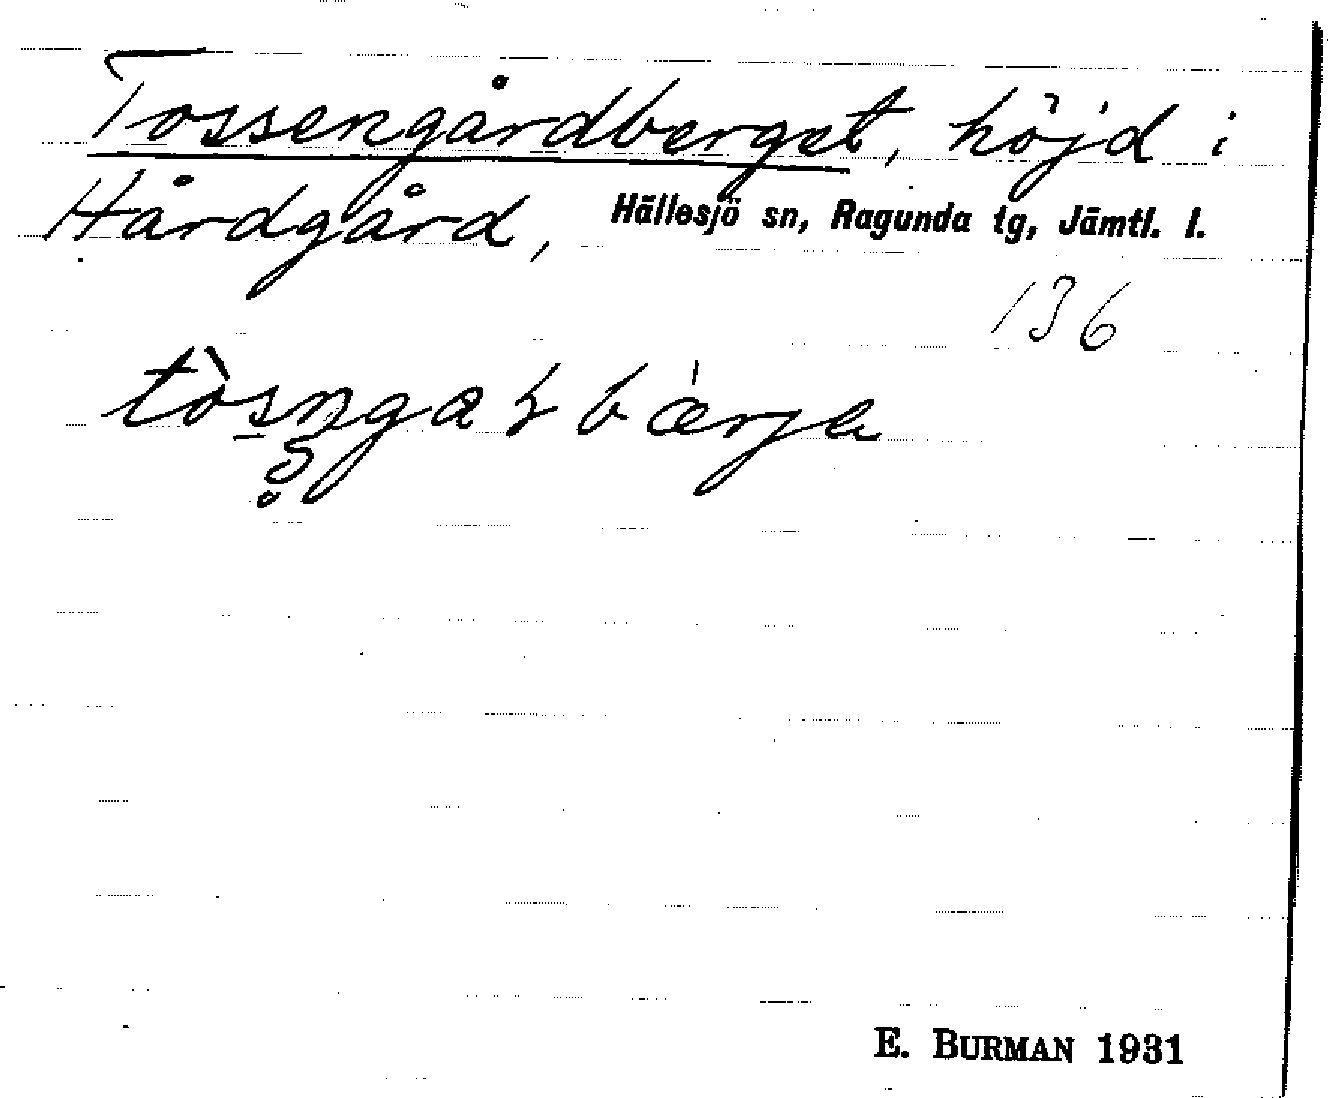 Tossengårdberget, höjd i
Hårdgård, Hällesjö sn, Ragunda tg, Jämtl. l.
136
E. BURMAN 1931